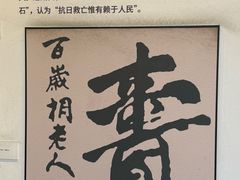 石”，认为“抗日救亡惟有赖于人民”。
百岁桐老人
寿